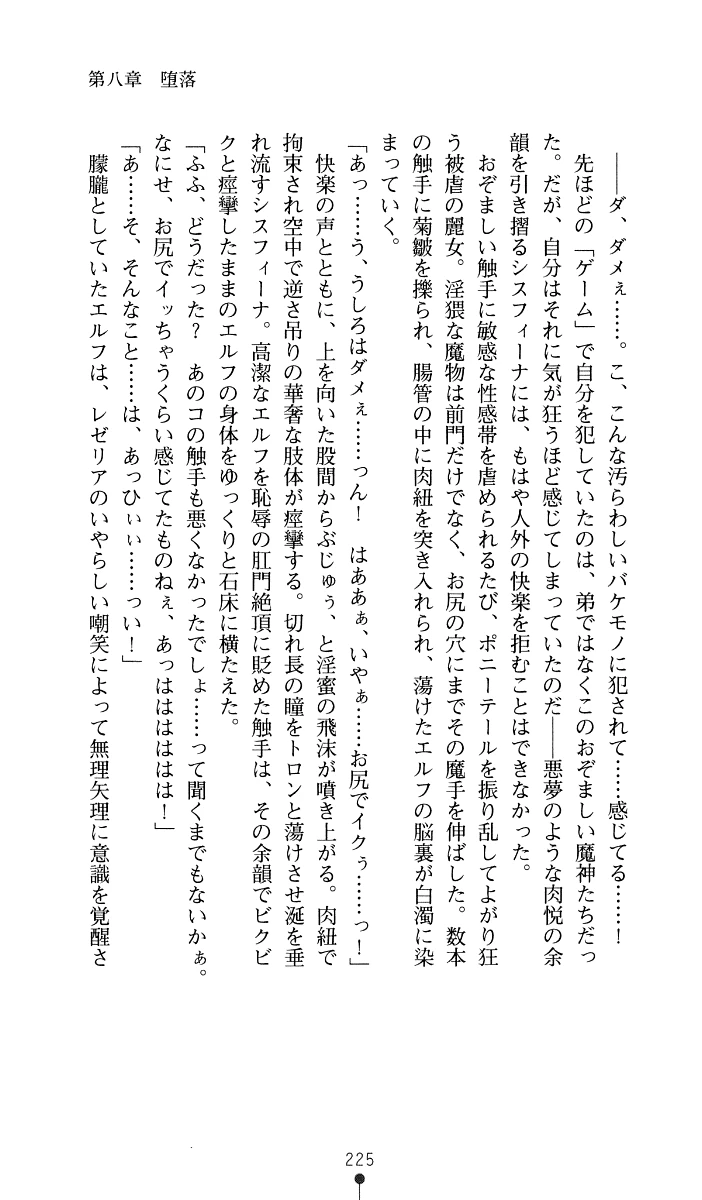 第八章　堕落
――ダ、ダメぇ……。こ、こんな汚らわしいバケモノに犯されて……感じてる……！
先ほどの「ゲーム」で自分を犯していたのは、弟ではなくこのおぞましい魔神たちだっ
た。だが、自分はそれに気が狂うほど感じてしまっていたのだ――悪夢のような肉悦の余
韻を引き摺るシスフィーナには、もはや人外の快楽を拒むことはできなかった。
おぞましい触手に敏感な性感帯を虐められるたび、ポニーテールを振り乱してよがり狂
う被虐の麗女。淫猥な魔物は前門だけでなく、お尻の穴にまでその魔手を伸ばした。数本
の触手に菊皺を擽られ、腸管の中に肉紐を突き入れられ、蕩けたエルフの脳裏が白濁に染
まっていく。
「あっ……う、うしろはダメぇ……っん！　はああぁ、いやぁ……お尻でイクぅ……っ！」
快楽の声とともに、上を向いた股間からぶじゅぅ、と淫蜜の飛沫が噴き上がる。肉紐で
拘束され空中で逆さ吊りの華奢な肢体が痙攣する。切れ長の瞳をトロンと蕩けさせ涎を垂
れ流すシスフィーナ。高潔なエルフを恥辱の肛門絶頂に貶めた触手は、その余韻でビクビ
クと痙攣したままのエルフの身体をゆっくりと石床に横たえた。
「ふふ、どうだった？　あのコの触手も悪くなかったでしょ……って聞くまでもないかぁ。
なにせ、お尻でイッちゃうくらい感じてたものねぇ、あっはははははは！」
「あ……そ、そんなこと……は、あっひぃぃ……っい！」
朦朧としていたエルフは、レゼリアのいやらしい嘲笑によって無理矢理に意識を覚醒さ
225